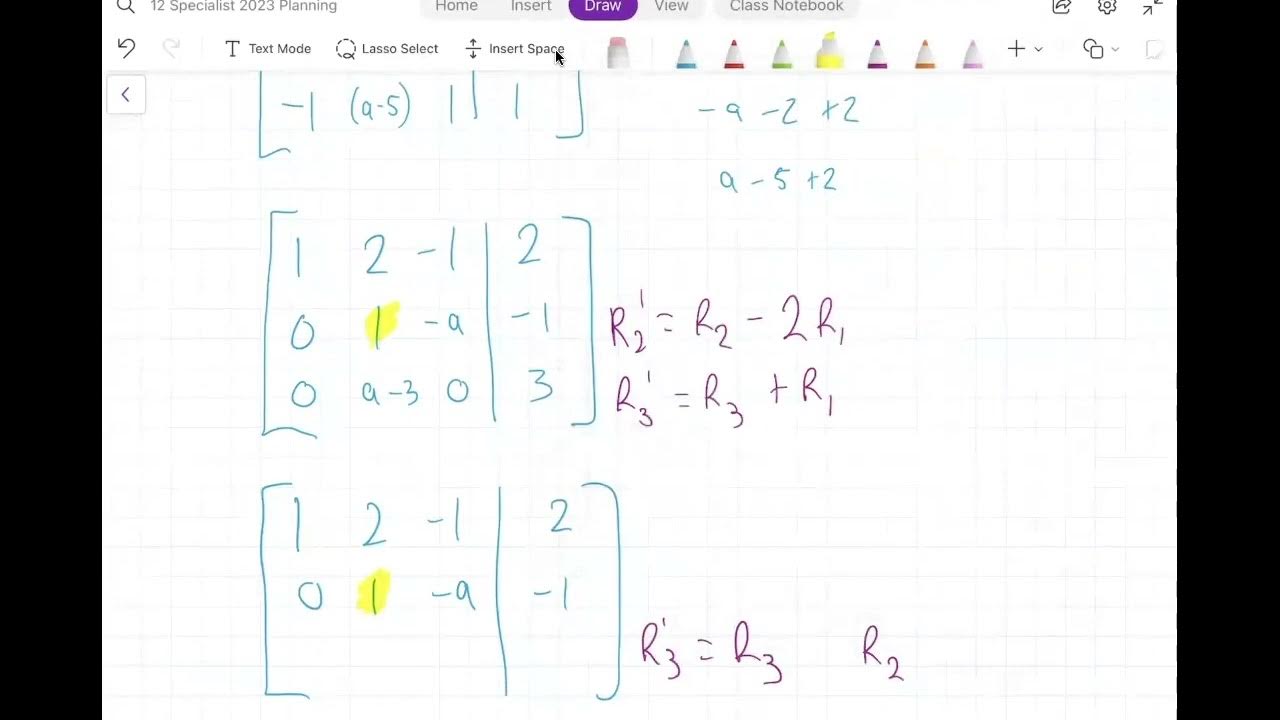 12 Specialist 2023 Planning Home Insert Draw View Class Notebook
Text Mode Lasso Select Insert Space
-1 (a-5) 1 | 1
-a -2 +2
a -5 +2
1 2 -1 | 2
0 1 -a | -1 R₂' = R₂ - 2R₁
0 a-3 0 | 3 R₃' = R₃ + R₁
1 2 -1 | 2
0 1 -a | -1
R₃' = R₃ R₂